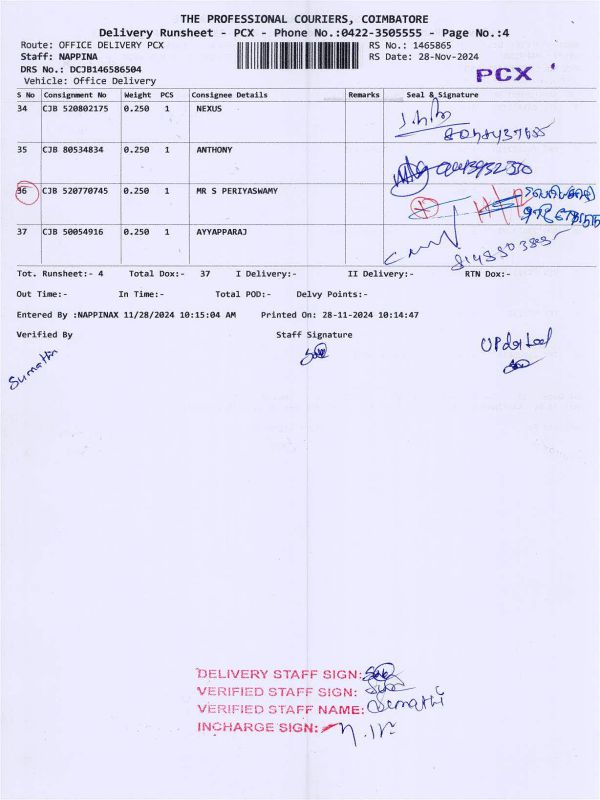 THE PROFESSIONAL COURIERS, COIMBATORE
Delivery Runsheet - PCX - Phone No.:0422-3505555 - Page No.:4
Route: OFFICE DELIVERY PCX
RS No.: 1465865
Staff: NAPPINA
RS Date: 28-Nov-2024
DRS No.: DCJB146586504
Vehicle: Office Delivery
PCX
S No Consignment No Weight PCS Consignee Details Remarks Seal & Signature
34 CJB 520802175 0.250 1 NEXUS
35 CJB 80534834 0.250 1 ANTHONY
36 CJB 520770745 0.250 1 MR S PERIYASWAMY
37 CJB 50054916 0.250 1 AYYAPPARAJ
Tot. Runsheet:- 4 Total Dox:- 37 I Delivery:- II Delivery:- RTN Dox:-
Out Time:- In Time:- Total POD:- Delvy Points:-
Entered By :NAPPINAX 11/28/2024 10:15:04 AM Printed On: 28-11-2024 10:14:47
Verified By Staff Signature
Sumathi
Updated
DELIVERY STAFF SIGN:
VERIFIED STAFF SIGN:
VERIFIED STAFF NAME: Sumathi
INCHARGE SIGN: